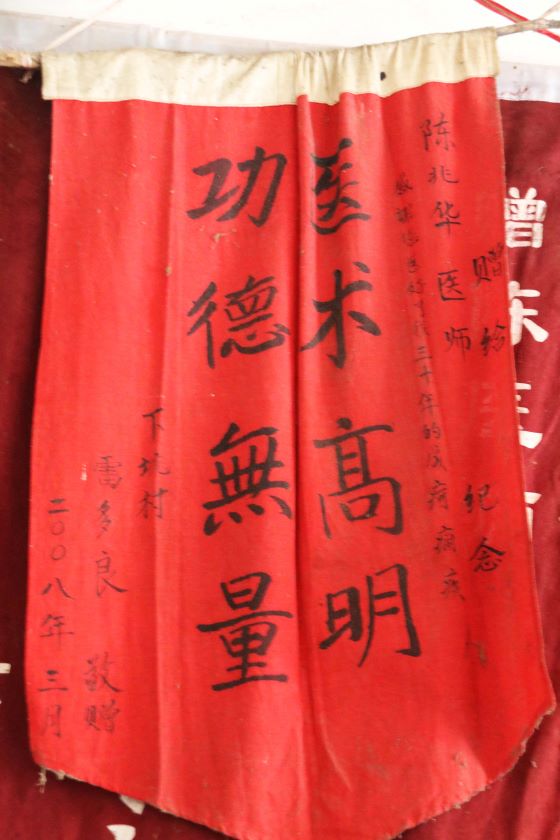 赠给
纪念
陈兆华医师
三十年的
医术高明
功德無量
下坑村
雷多良 敬赠
二〇〇八年三月
赠陈